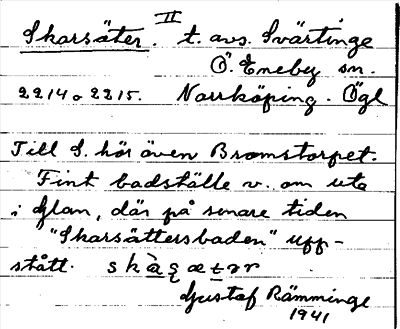 II
Skarsäter. t. avs. Svärtinge
Ö. Eneby sn.
2214 o 2215. Norrköping. Ögl
Till S. hör även Bromstorpet.
Fint badställe v. om uta
i Glan, där på senare tiden
"Skarsättersbaden" upp-
stått. skàʂætər
Gustaf Rämminge
1941